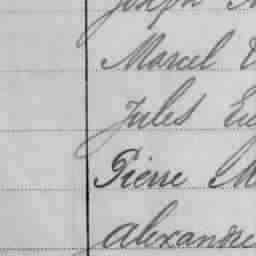 Joseph
Marcel
Jules
Pierre
Alexandre